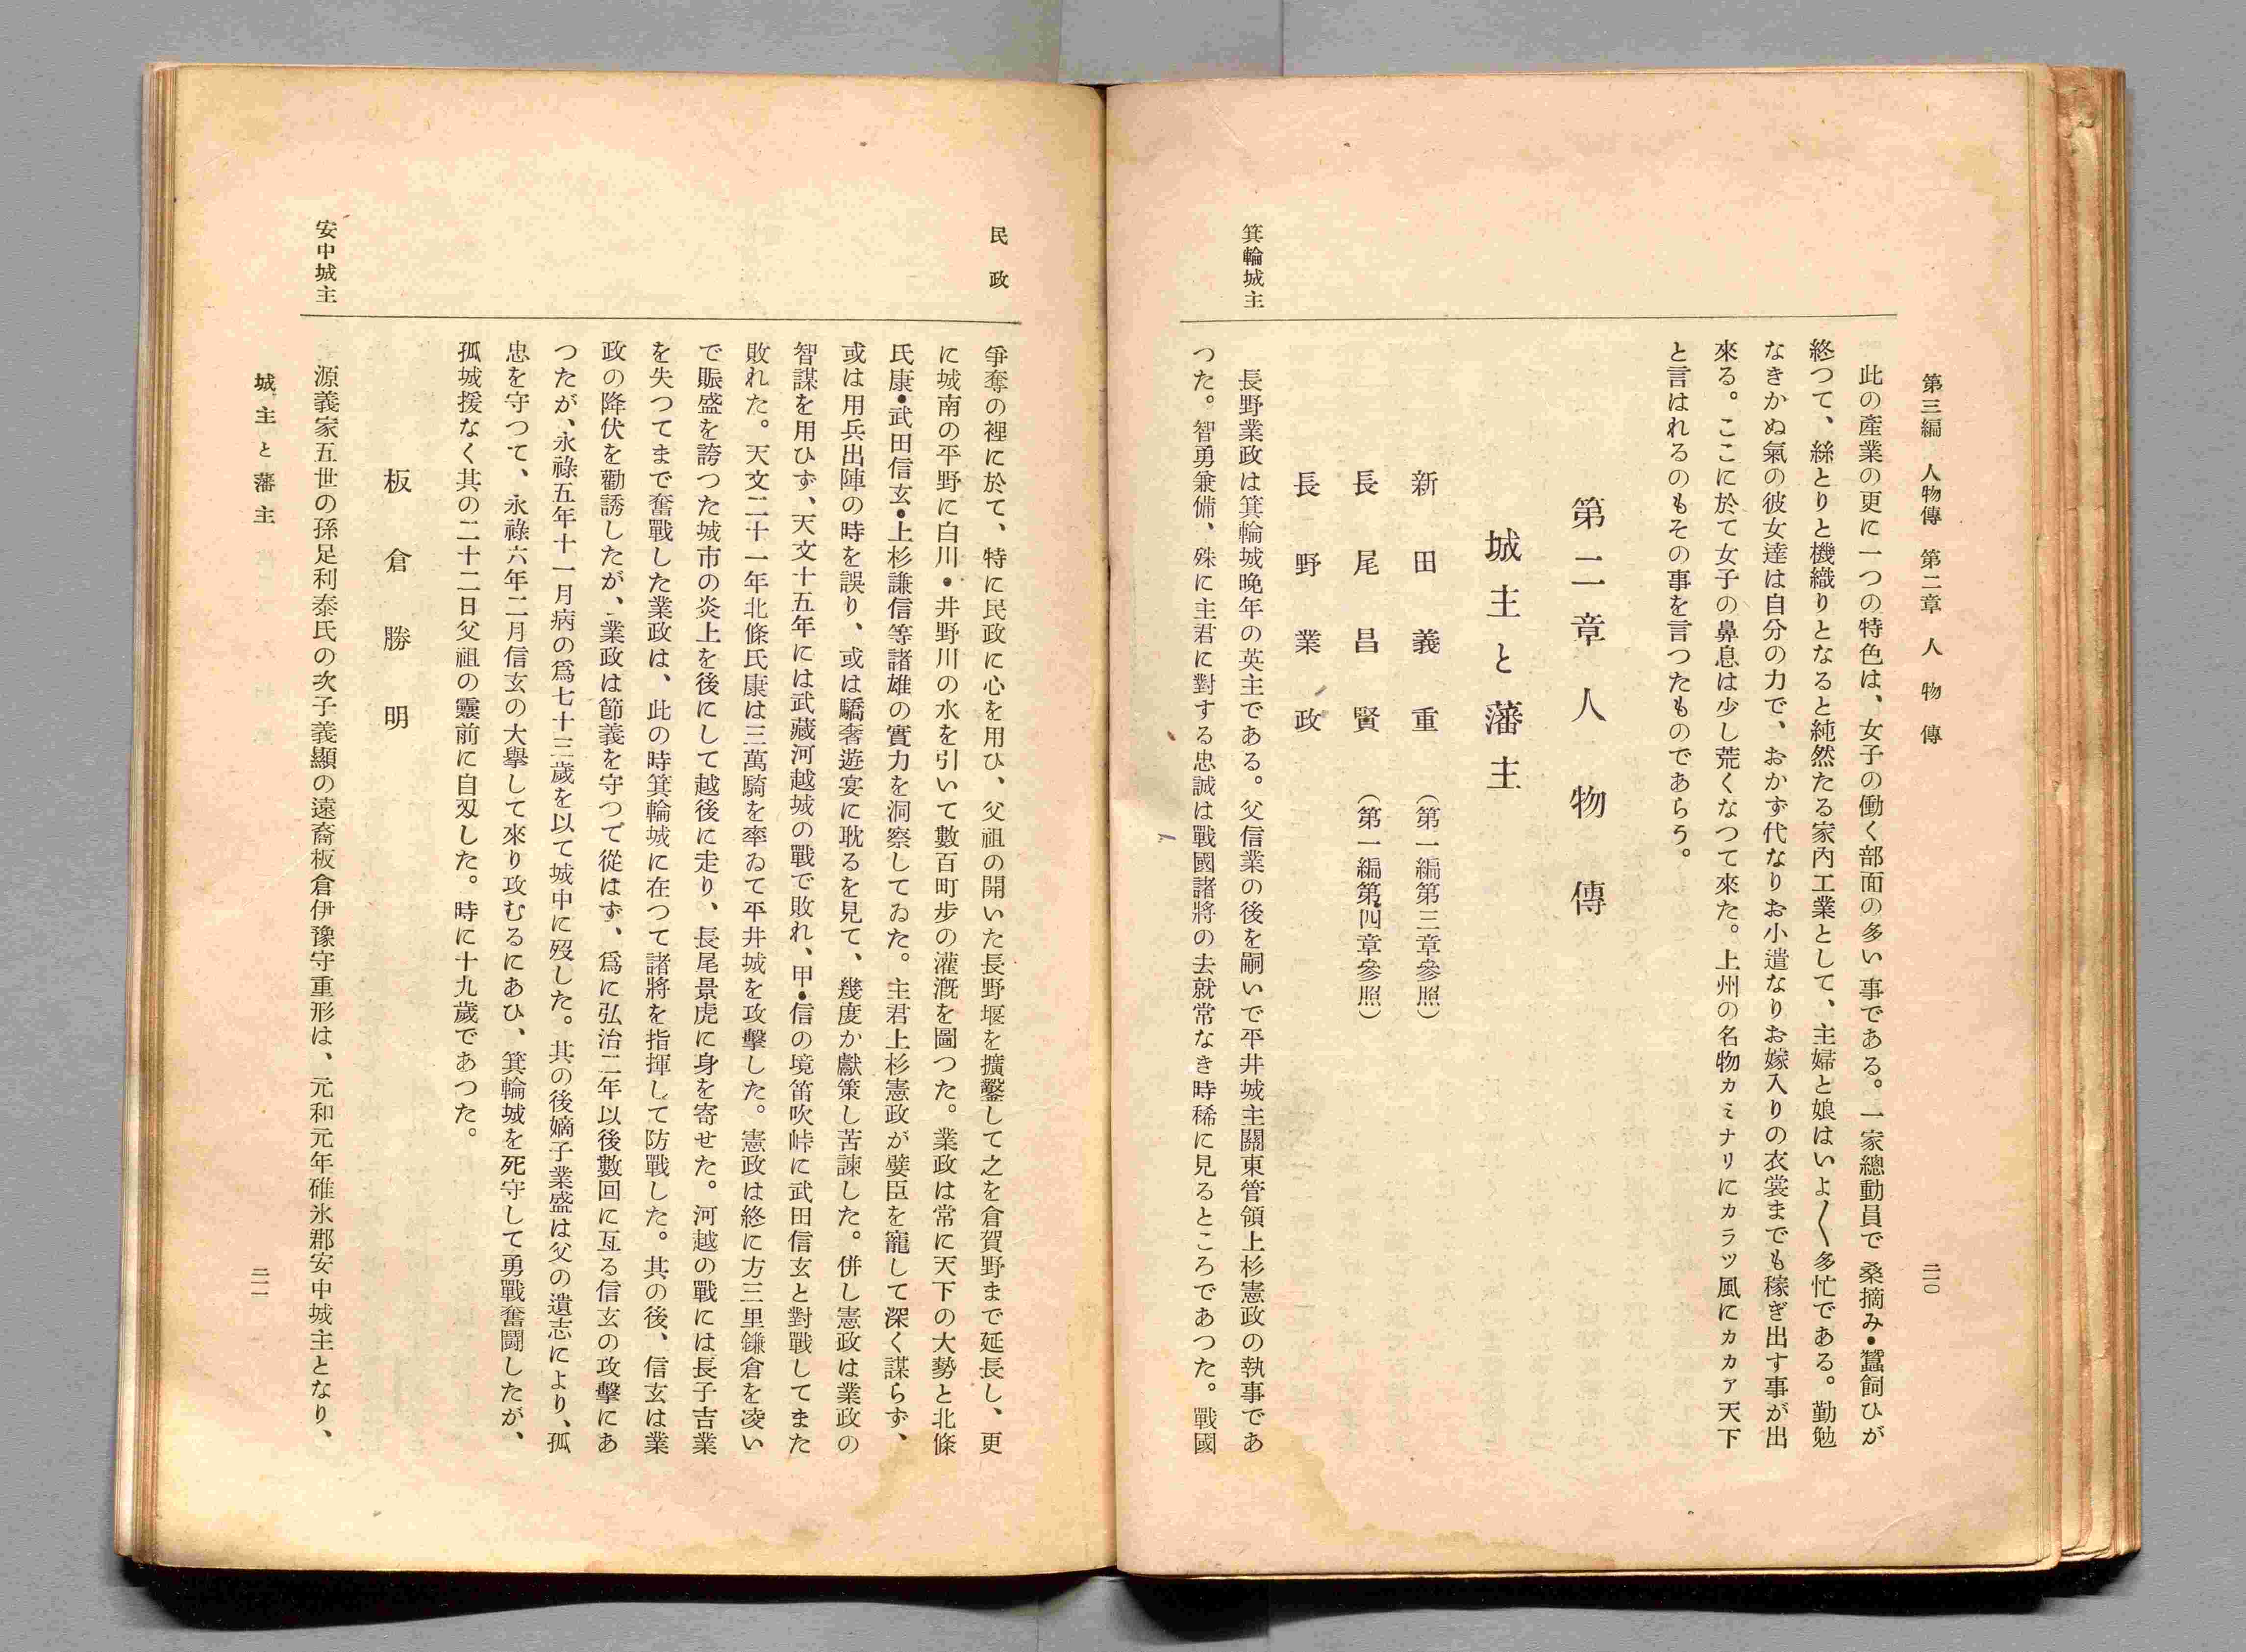 第三編 人物傳 第二章 人物傳
二一〇
此の産業の更に一つの特色は、女子の働く部面の多い事である。一家總動員で桑摘み・蠶飼ひが
終つて、絲とりと機織りとなると純然たる家內工業として、主婦と娘はいよ〱多忙である。勤勉
なきかぬ氣の彼女達は自分の力で、おかず代なりお小遣なりお嫁入りの衣裳までも稼ぎ出す事が出
來る。ここに於て女子の鼻息は少し荒くなつて來た。上州の名物カミナリにカラツ風にカカァ天下
と言はれるのもその事を言つたものであらう。
第二章 人物傳
城主と藩主
新田義重 (第一編第三章參照)
長尾昌賢 (第一編第四章參照)
長野業政
箕輪城主
長野業政は箕輪城晩年の英主である。父信業の後を嗣いで平井城主關東管領上杉憲政の執事であ
つた。智勇兼備、殊に主君に對する忠誠は戰國諸將の去就常なき時稀に見るところであつた。戰國
民政
爭奪の裡に於て、特に民政に心を用ひ、父祖の開いた長野堰を擴鑿して之を倉賀野まで延長し、更
に城南の平野に白川・井野川の水を引いて數百町步の灌漑を圖つた。業政は常に天下の大勢と北條
氏康・武田信玄・上杉謙信等諸雄の實力を洞察してゐた。主君上杉憲政が嬖臣を寵して深く謀らず、
或は用兵出陣の時を誤り、或は驕奢遊宴に耽るを見て、幾度か獻策し苦諫した。併し憲政は業政の
智謀を用ひず、天文十五年には武藏河越城の戰で敗れ、甲・信の境笛吹峠に武田信玄と對戰してまた
敗れた。天文二十一年北條氏康は三萬騎を率ゐて平井城を攻擊した。憲政は終に方三里鎌倉を凌い
で賑盛を誇つた城市の炎上を後にして越後に走り、長尾景虎に身を寄せた。河越の戰には長子吉業
を失つてまで奮戰した業政は、此の時箕輪城に在つて諸將を指揮して防戰した。其の後、信玄は業
政の降伏を勸誘したが、業政は節義を守つて從はず、爲に弘治二年以後數回に亙る信玄の攻擊にあ
つたが、永祿五年十一月病の爲七十三歲を以て城中に歿した。其の後嫡子業盛は父の遺志により、孤
忠を守つて、永祿六年二月信玄の大擧して來り攻むるにあひ、箕輪城を死守して勇戰奮鬪したが、
孤城援なく其の二十二日父祖の靈前に自刄した。時に十九歲であつた。
板倉勝明
安中城主
源義家五世の孫足利泰氏の次子義顯の遠裔板倉伊豫守重形は、元和元年碓氷郡安中城主となり、
城主と藩主
二一一